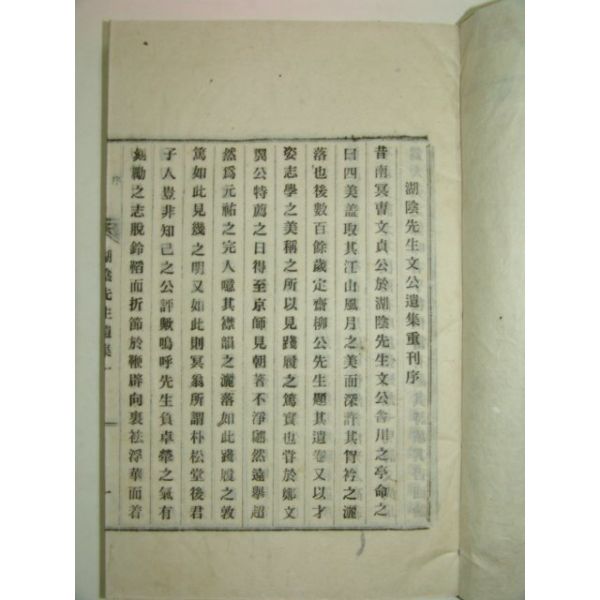 湖陰先生文公遺集重刊序
昔南冥曹文貞公於湖陰先生文公舍川之亭命之
曰四美盖取其江山風月之美而深許其胷衿之灑
落也後數百餘歲定齋柳公先生題其遺卷又以才
姿志學之美稱之所以見踐履之篤實也甞於鄭文
翼公特薦之日得至京師見朝著不淨飄然遠擧超
然爲元祐之完人噫其襟韻之灑落如此踐履之敦
篤如此見幾之明又如此則冥翁所謂朴松堂後君
子人豈非知己之公評歟嗚呼先生負卓犖之氣有
勉勵之志脫鈴韜而折節於鞭辟向裏祛浮華而着
序
湖陰先生遺集一
一